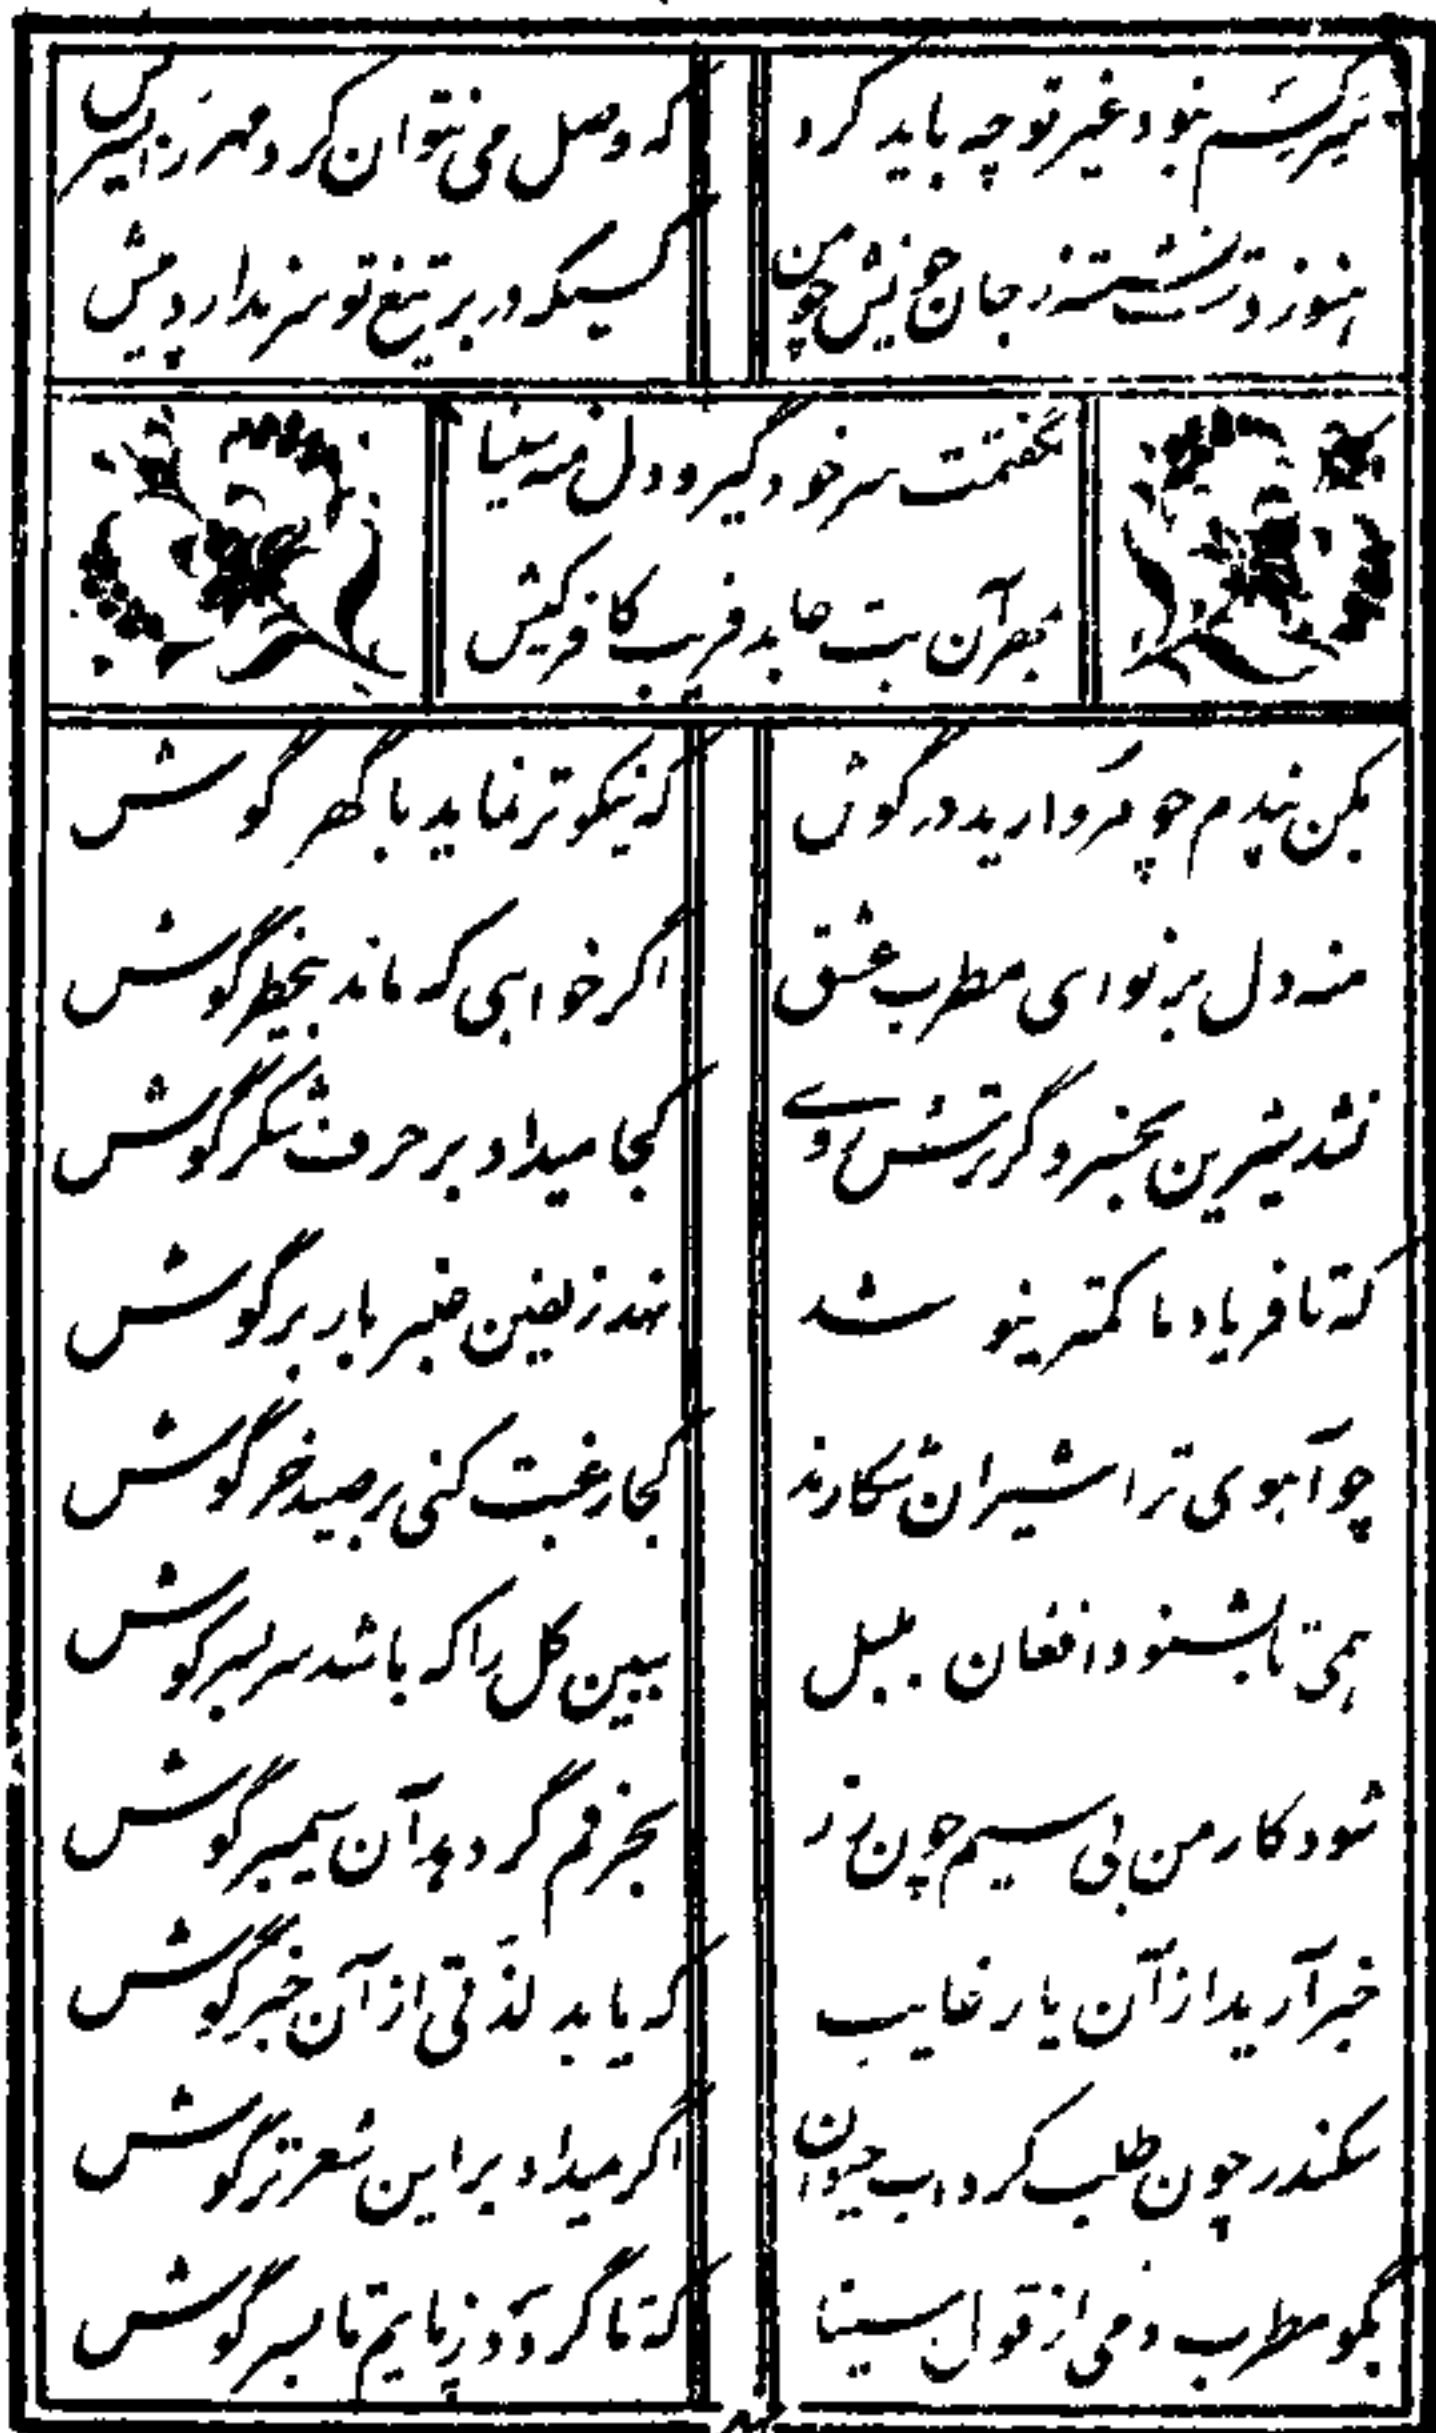 نبود غیر تو چه باید کرد
که وصل می نتوان کرد
هنوز دست نشسته ز جان خویش چو من
کسیکه در بر تیغ تو سر ندارد پیش
نگفتمت سر خود گیر و دل منه سینا
بمهر آن بت عابد فریب کافر کیش
بکن پندم چو مروارید در گوش
که نیکوتر نماید با گهر گوش
منه دل بر نوای مطرب عشق
اگر خواهی که ماند بیخطر گوش
نشد شیرین بخسرو گر ترش روے
کجا میداد بر حرف شکر گوش
که تا فریاد ما کمتر نیوشد
نهد زلفین عنبر بار بر گوش
چو آهوی ترا شیران شکارند
کجا رغبت کنی بر صید خرگوش
همی تا بشنود افغان بلبل
ببین گل را که باشد سر بسر گوش
شود کار من بی سیم چون زر
بحرفم گر دهد آن سیمبر گوش
خبر آرید از آن یار غایب
که یابد لذتی از آن خبر گوش
سکندر چون طلب کرد اب حیوان
اگر میداد بر این شعر تر گوش
بگو مطرب دمی از قول سینا
که تا گردد ز پایم تا بسر گوش